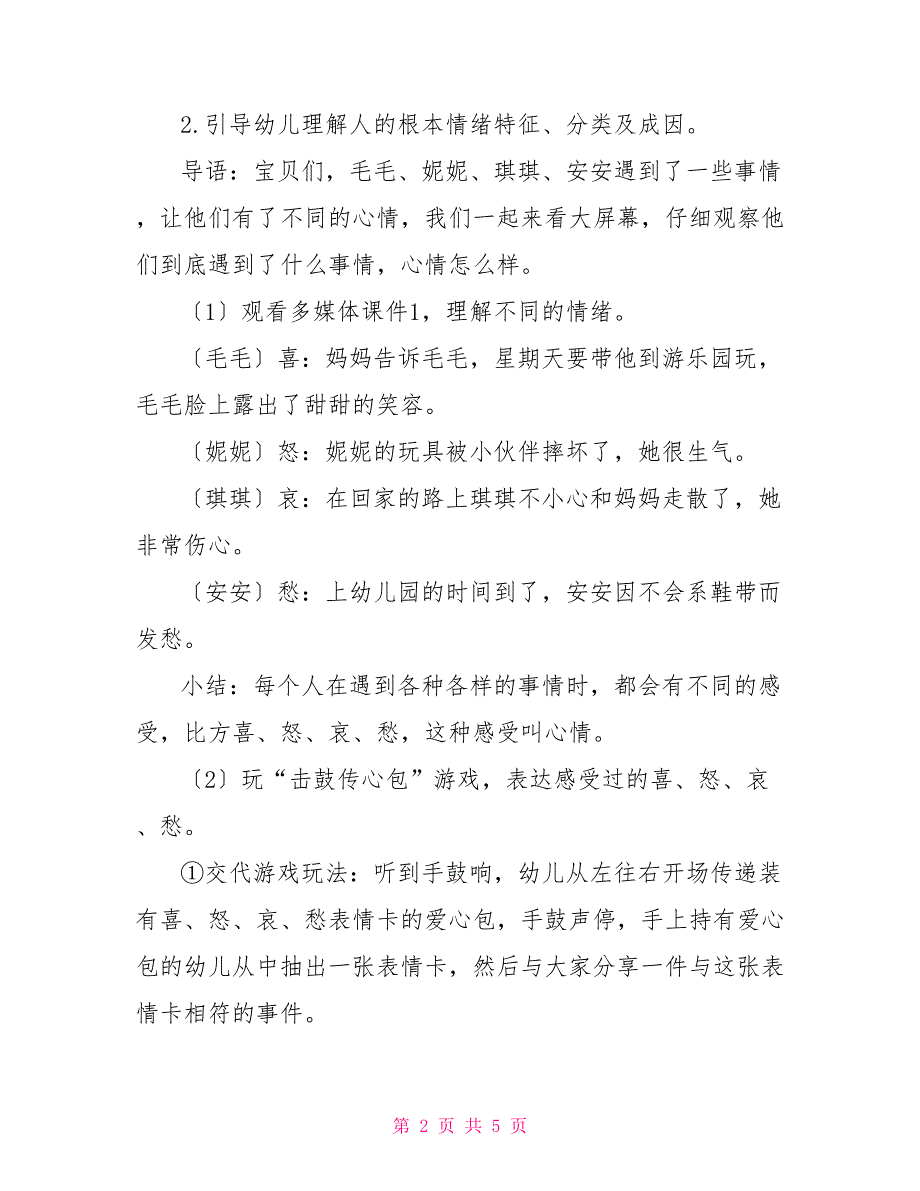 2.引导幼儿理解人的根本情绪特征、分类及成因。
导语：宝贝们，毛毛、妮妮、琪琪、安安遇到了一些事情
，让他们有了不同的心情，我们一起来看大屏幕，仔细观察他
们到底遇到了什么事情，心情怎么样。
〔1〕观看多媒体课件1，理解不同的情绪。
〔毛毛〕喜：妈妈告诉毛毛，星期天要带他到游乐园玩，
毛毛脸上露出了甜甜的笑容。
〔妮妮〕怒：妮妮的玩具被小伙伴摔坏了，她很生气。
〔琪琪〕哀：在回家的路上琪琪不小心和妈妈走散了，她
非常伤心。
〔安安〕愁：上幼儿园的时间到了，安安因不会系鞋带而
发愁。
小结：每个人在遇到各种各样的事情时，都会有不同的感
受，比方喜、怒、哀、愁，这种感受叫心情。
〔2〕玩“击鼓传心包”游戏，表达感受过的喜、怒、哀
、愁。
①交代游戏玩法：听到手鼓响，幼儿从左往右开场传递装
有喜、怒、哀、愁表情卡的爱心包，手鼓声停，手上持有爱心
包的幼儿从中抽出一张表情卡，然后与大家分享一件与这张表
情卡相符的事件。
第 2 页 共 5 页